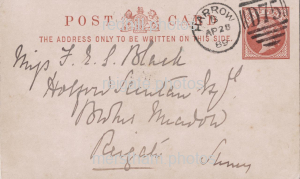 POST CARD
THE ADDRESS ONLY TO BE WRITTEN ON THIS SIDE.
HARROW
AP 28
86
D75
Miss F. E. S. Black
Holford
Meadow
Reigate
Surrey